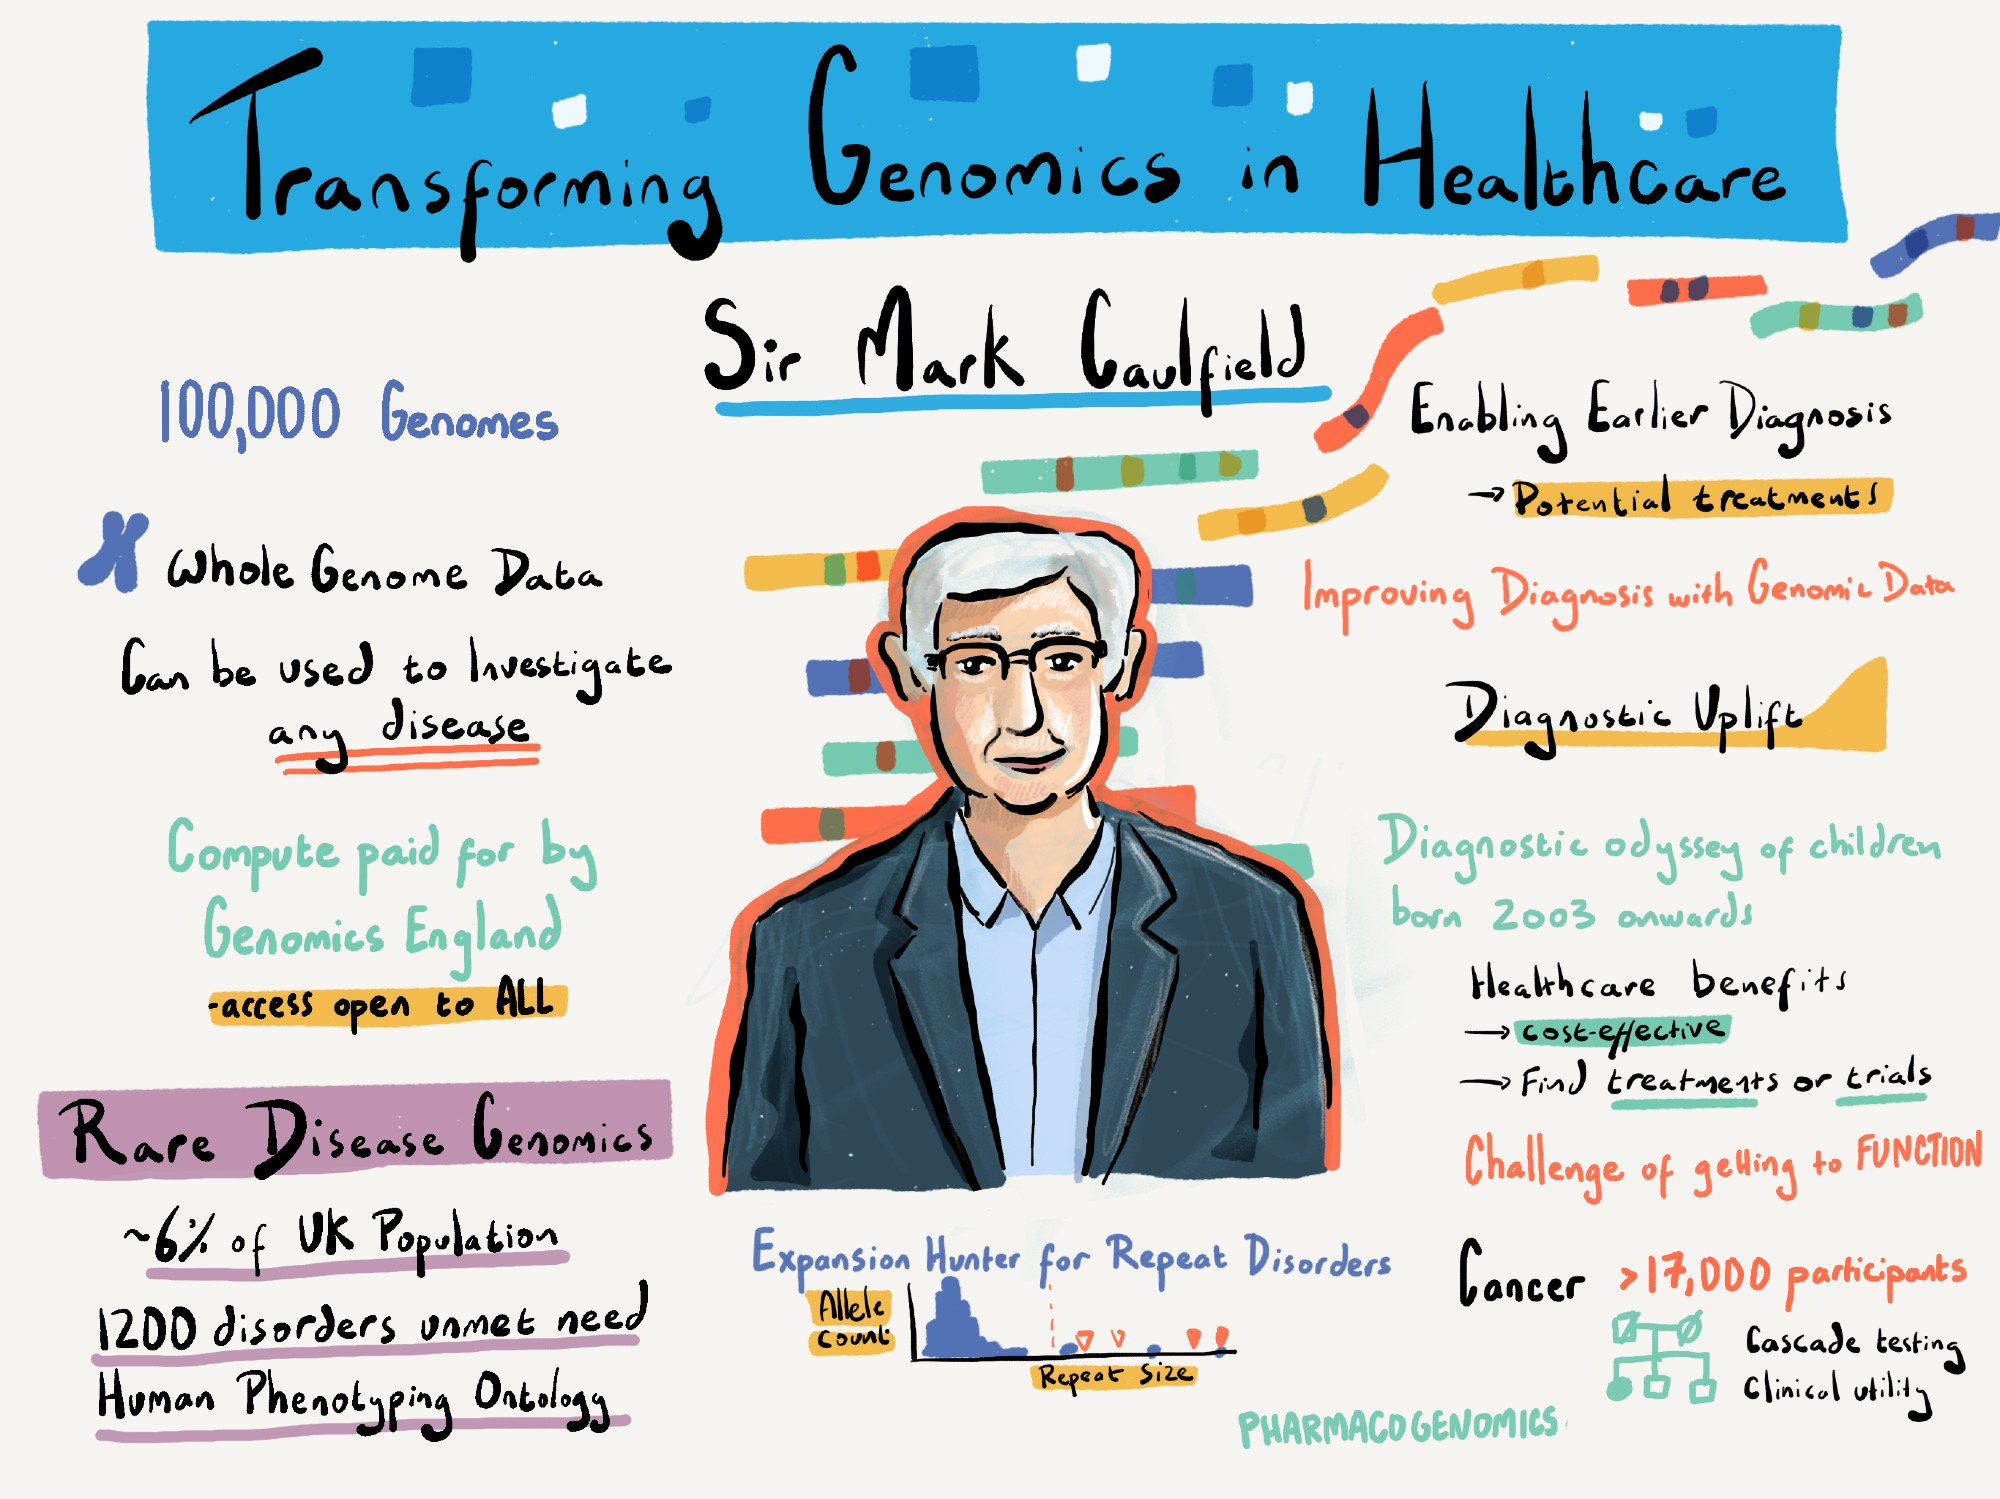 Transforming Genomics in Healthcare
Sir Mark Caulfield
100,000 Genomes
Whole Genome Data
Can be used to Investigate
any disease
Compute paid for by
Genomics England
-access open to ALL
Rare Disease Genomics
~6% of UK Population
1200 disorders unmet need
Human Phenotyping Ontology
Expansion Hunter for Repeat Disorders
Allele
Count
Repeat Size
PHARMACOGENOMICS
Enabling Earlier Diagnosis
→ Potential treatments
Improving Diagnosis with Genomic Data
Diagnostic Uplift
Diagnostic odyssey of children
born 2003 onwards
Healthcare benefits
→ cost-effective
→ Find treatments or trials
Challenge of getting to FUNCTION
Cancer >17,000 participants
Cascade testing
Clinical utility